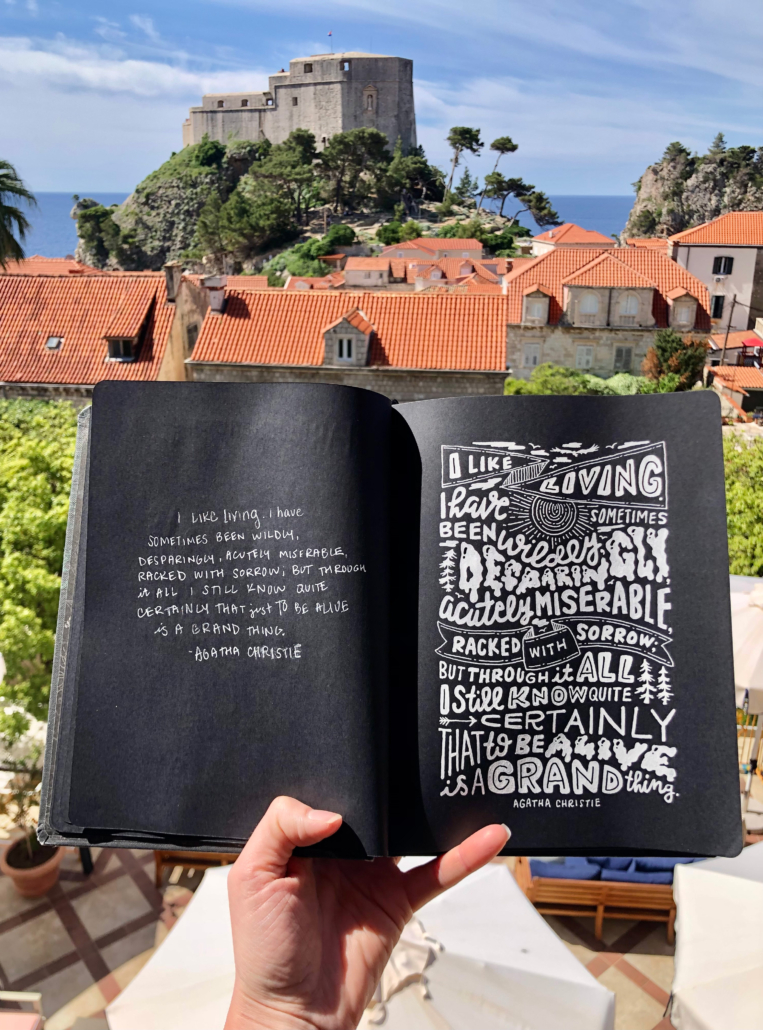 I LIKE living. I have
SOMETIMES BEEN WILDLY,
DESPARINGLY, ACUTELY MISERABLE,
RACKED WITH SORROW; BUT THROUGH
it ALL I STILL KNOW QUITE
CERTAINLY THAT just TO BE ALIVE
is A GRAND THING.
-AGATHA CHRISTIE
I LIKE LIVING.
I have SOMETIMES
BEEN WILDLY,
DESPARINGLY
acutely MISERABLE,
RACKED WITH SORROW;
BUT THROUGH it ALL
I Still KNOW QUITE
CERTAINLY
THAT to BE ALIVE
is A GRAND thing.
AGATHA CHRISTIE